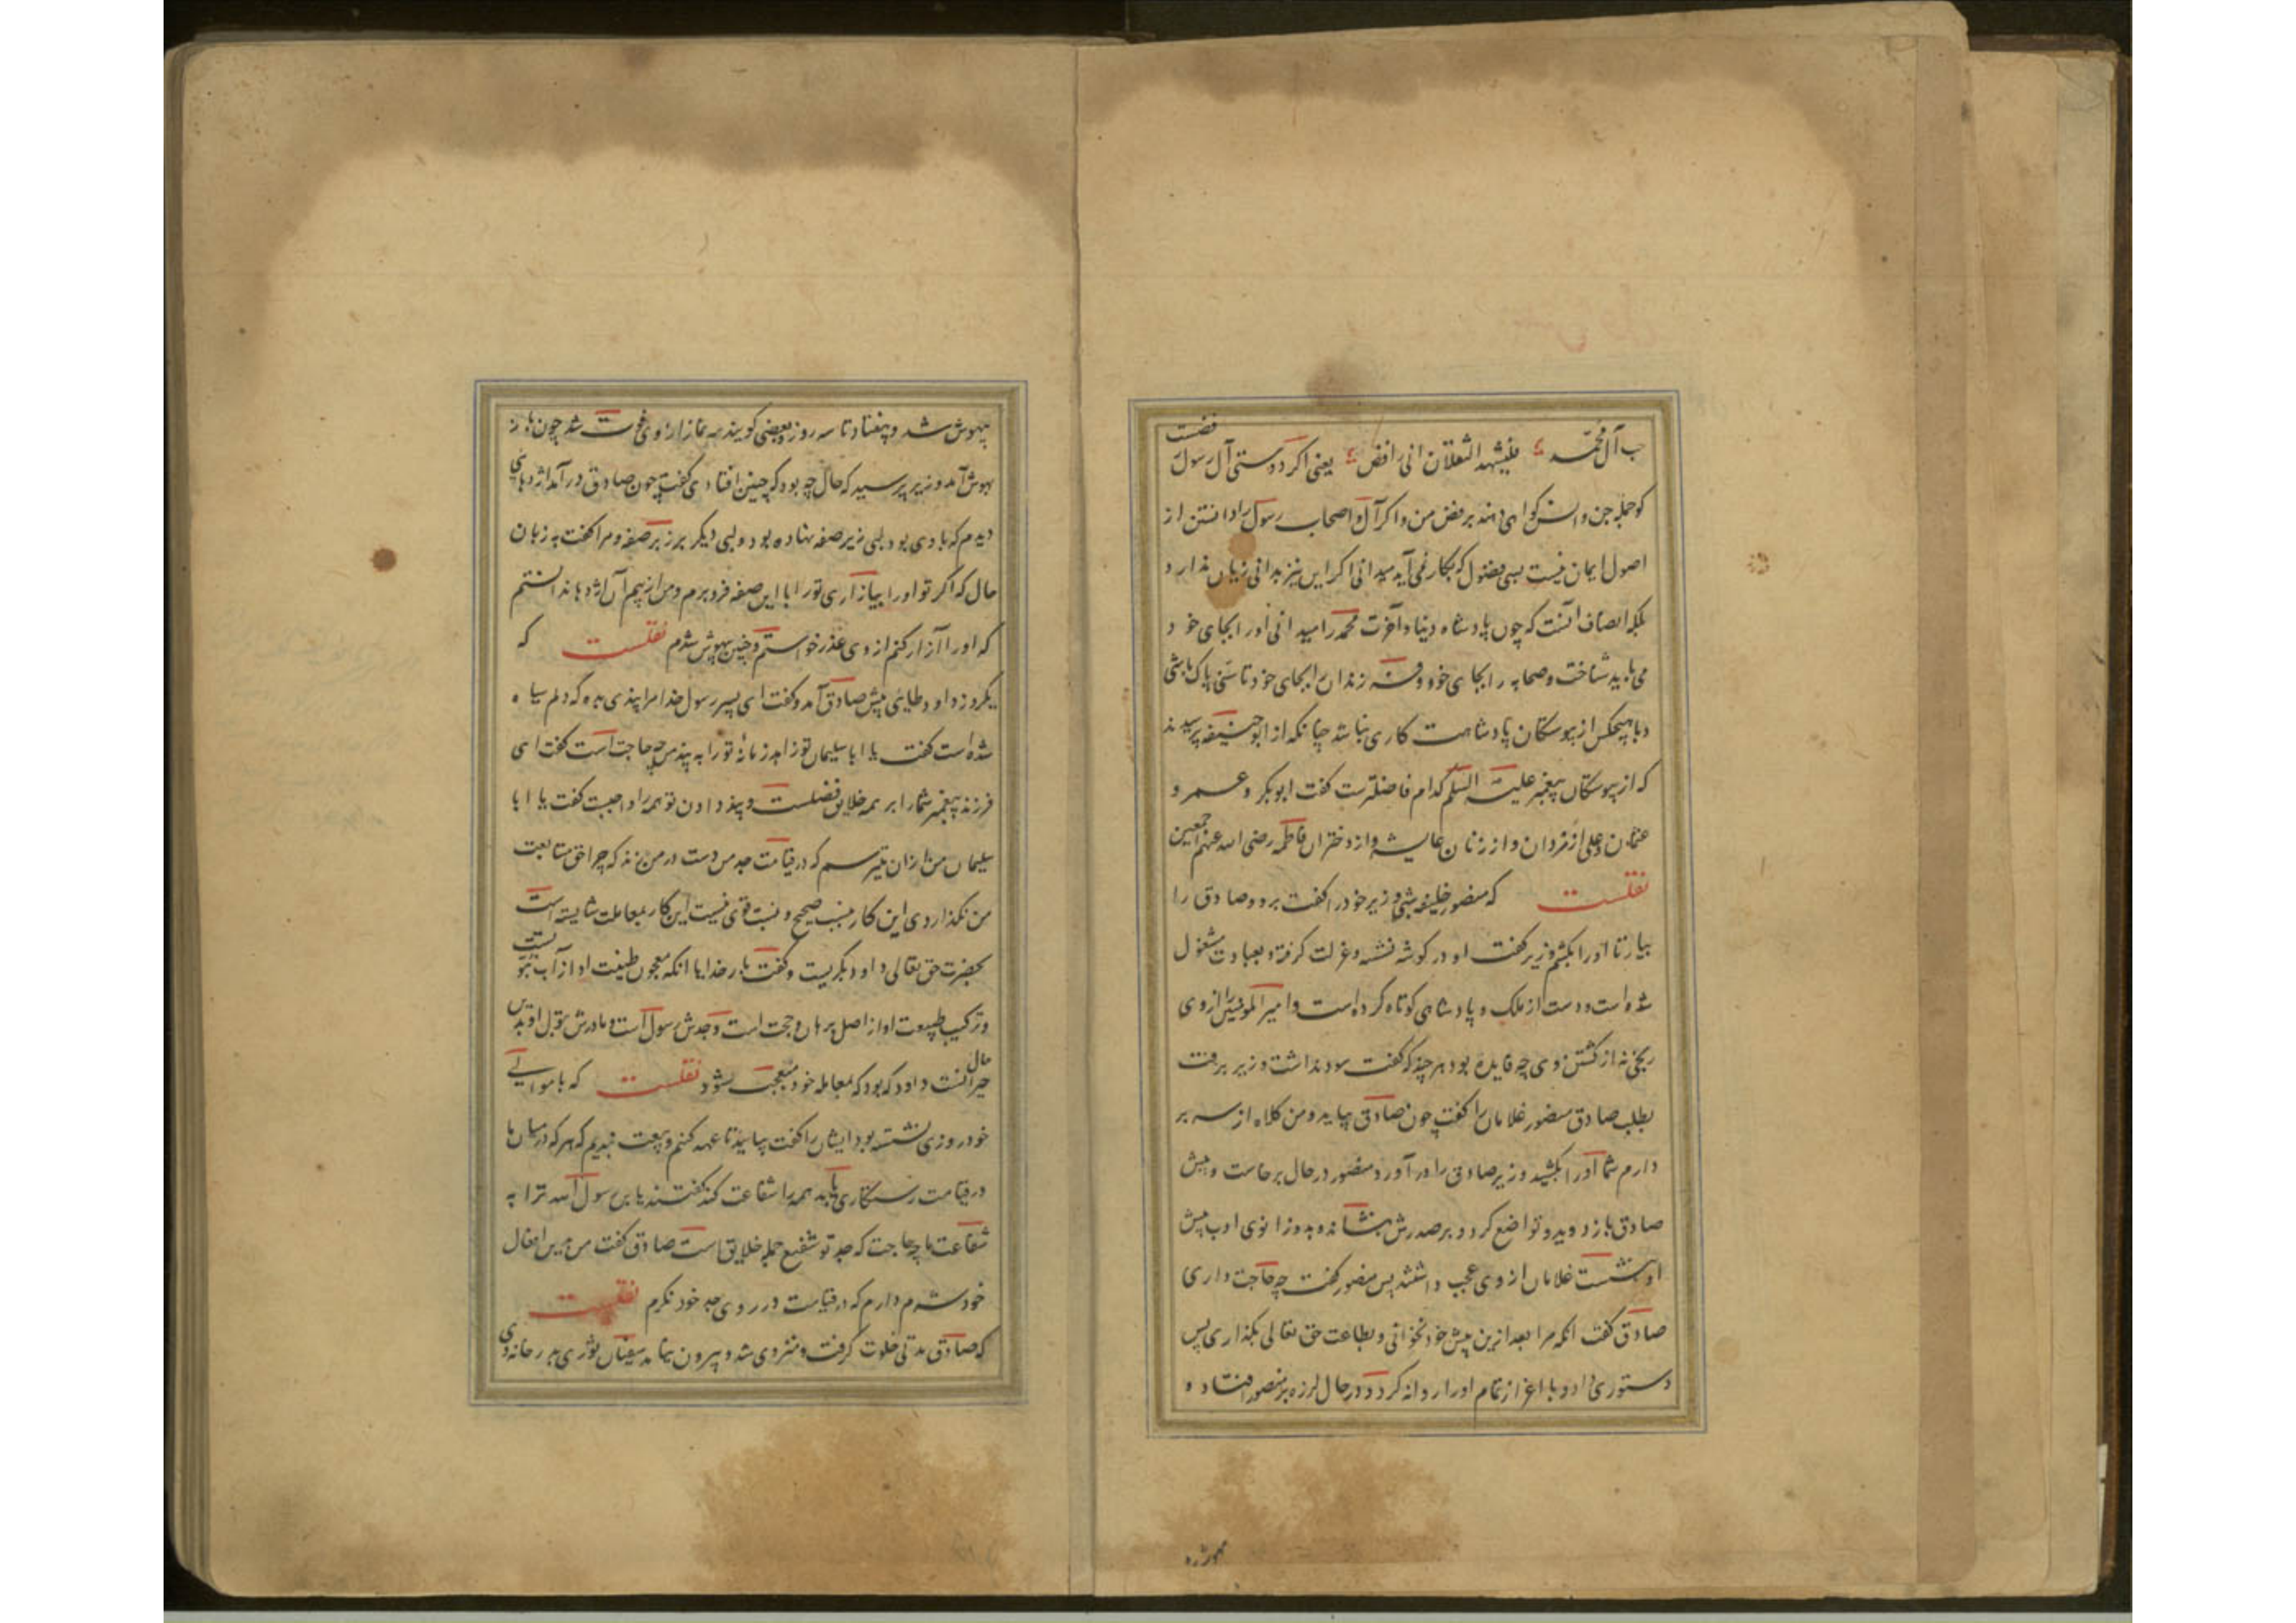 حب آل محمد ؛ فلیشهد الثقلان انی رافض ؛ یعنی اگر دوستی آل رسول رفضست
کو جمله جن و انس کواهی دهند برفض من و اکر آل و اصحاب رسول را دانستن از
اصول ایمان نیست بسی فضول که بکار نمی آید میدانی اکر این نیز بدانی زیان ندارد
بلکه انصاف آنست که چون پادشاه دنیا و آخرت محمد را میدانی او را بجای خود
می باید شناخت و صحابه را بجای خود و فرزندان را بجای خود تا سنی پاک باشی
و با هیچکس از پیوستکان پادشاهت کاری نباشد چنانکه از ابو حنیفه پرسیدند
که از پیوستکان پیغمبر علیه السلم کدام فاضلترست کفت ابوبکر و عمر و
عثمان و علی از مردان و از زنان عایشه و از دختران فاطمه رضی الله عنهم اجمعین
نقلست که منصور خلیفه شبی وزیر خود را کفت برو و صادق را
بیار تا او را بکشم وزیر کفت او در کوشه نشسته و عزلت کرفته و بعبادت مشغول
شده است و دست از ملک و پادشاهی کوتاه کرده است و امیر المومنین را از وی
رنجی نه از کشتن وی چه فایده بود هر چند که کفت سود نداشت وزیر برفت
بطلب صادق منصور غلامان را کفت چون صادق بیاید و من کلاه از سر بر
دارم شما او را بکشید وزیر صادق را در آورد منصور در حال برخاست و پیش
صادق باز دوید و تواضع کرد و بر صدرش بنشاند و بدو زانوی ادب پیش
او بنشست غلامان از وی عجب داشتند پس منصور کفت چه حاجت داری
صادق کفت آنکه مرا بعد ازین پیش خود نخوانی و بطاعت حق تعالی بکذاری پس
دستوری داد و با اعزاز تمام او را روانه کرد و در حال لرزه بر منصور افتاد و
بیهوش شد و بیفتاد تا سه روز و بعضی کویند سه نماز از وی فوت شد چون باز
بهوش آمد وزیر پرسید که حال چه بود که چنین افتادی کفت چون صادق در آمد اژدهایی
دیدم که با وی بود لبی زیر صفه نهاده بود و لبی دیکر بر زبر صفه و مرا کفت به زبان
حال که اکر تو او را بیازاری تو را با این صفه فرو برم و من از بیم آن اژدها ندانستم
که او را آزار کنم از وی عذر خواستم و چنین بیهوش شدم نقلست که
یکروز داود طایی پیش صادق آمد و کفت ای پسر رسول خدا مرا پندی بده که دلم سیاه
شده است کفت یا ابا سلیمان تو زاهد زمانهٔ تو را به پند من چه حاجت است کفت ای
فرزند پیغمبر شما را بر همه خلایق فضلست و پند دادن تو همه را واجبست کفت یا ابا
سلیمان من از آن میترسم که در قیامت جد من دست در من زند که چرا حق متابعت
من نکذاردی این کار بنسب صحیح و نسبت قوی نیست این کار بمعاملت شایسته است
بحضرت حق تعالی داود بکریست و کفت بار خدایا آنکه معجون طینت او از آب نبوتست
و ترکیب طبیعت او از اصل برهان و حجت است و جدش رسول است و مادرش بتول او بدین
حیرانست داود که بود که بمعامله خود معجب شود نقلست که با موالی
خود روزی نشسته بود ایشان را کفت بیایید تا عهد کنیم و بیعت بندیم که هر که در میان ما
در قیامت رستکاری یابد همه را شفاعت کند کفتند یا بن رسول الله ترا به
شفاعت ما چه حاجت که جد تو شفیع جمله خلایق است صادق کفت من بدین افعال
خود شرم دارم که در قیامت در روی جد خود نکرم نقلست
که صادق مدتی خلوت کرفت و منزوی شد و بیرون نیامد سفیان ثوری بدر خانه وی